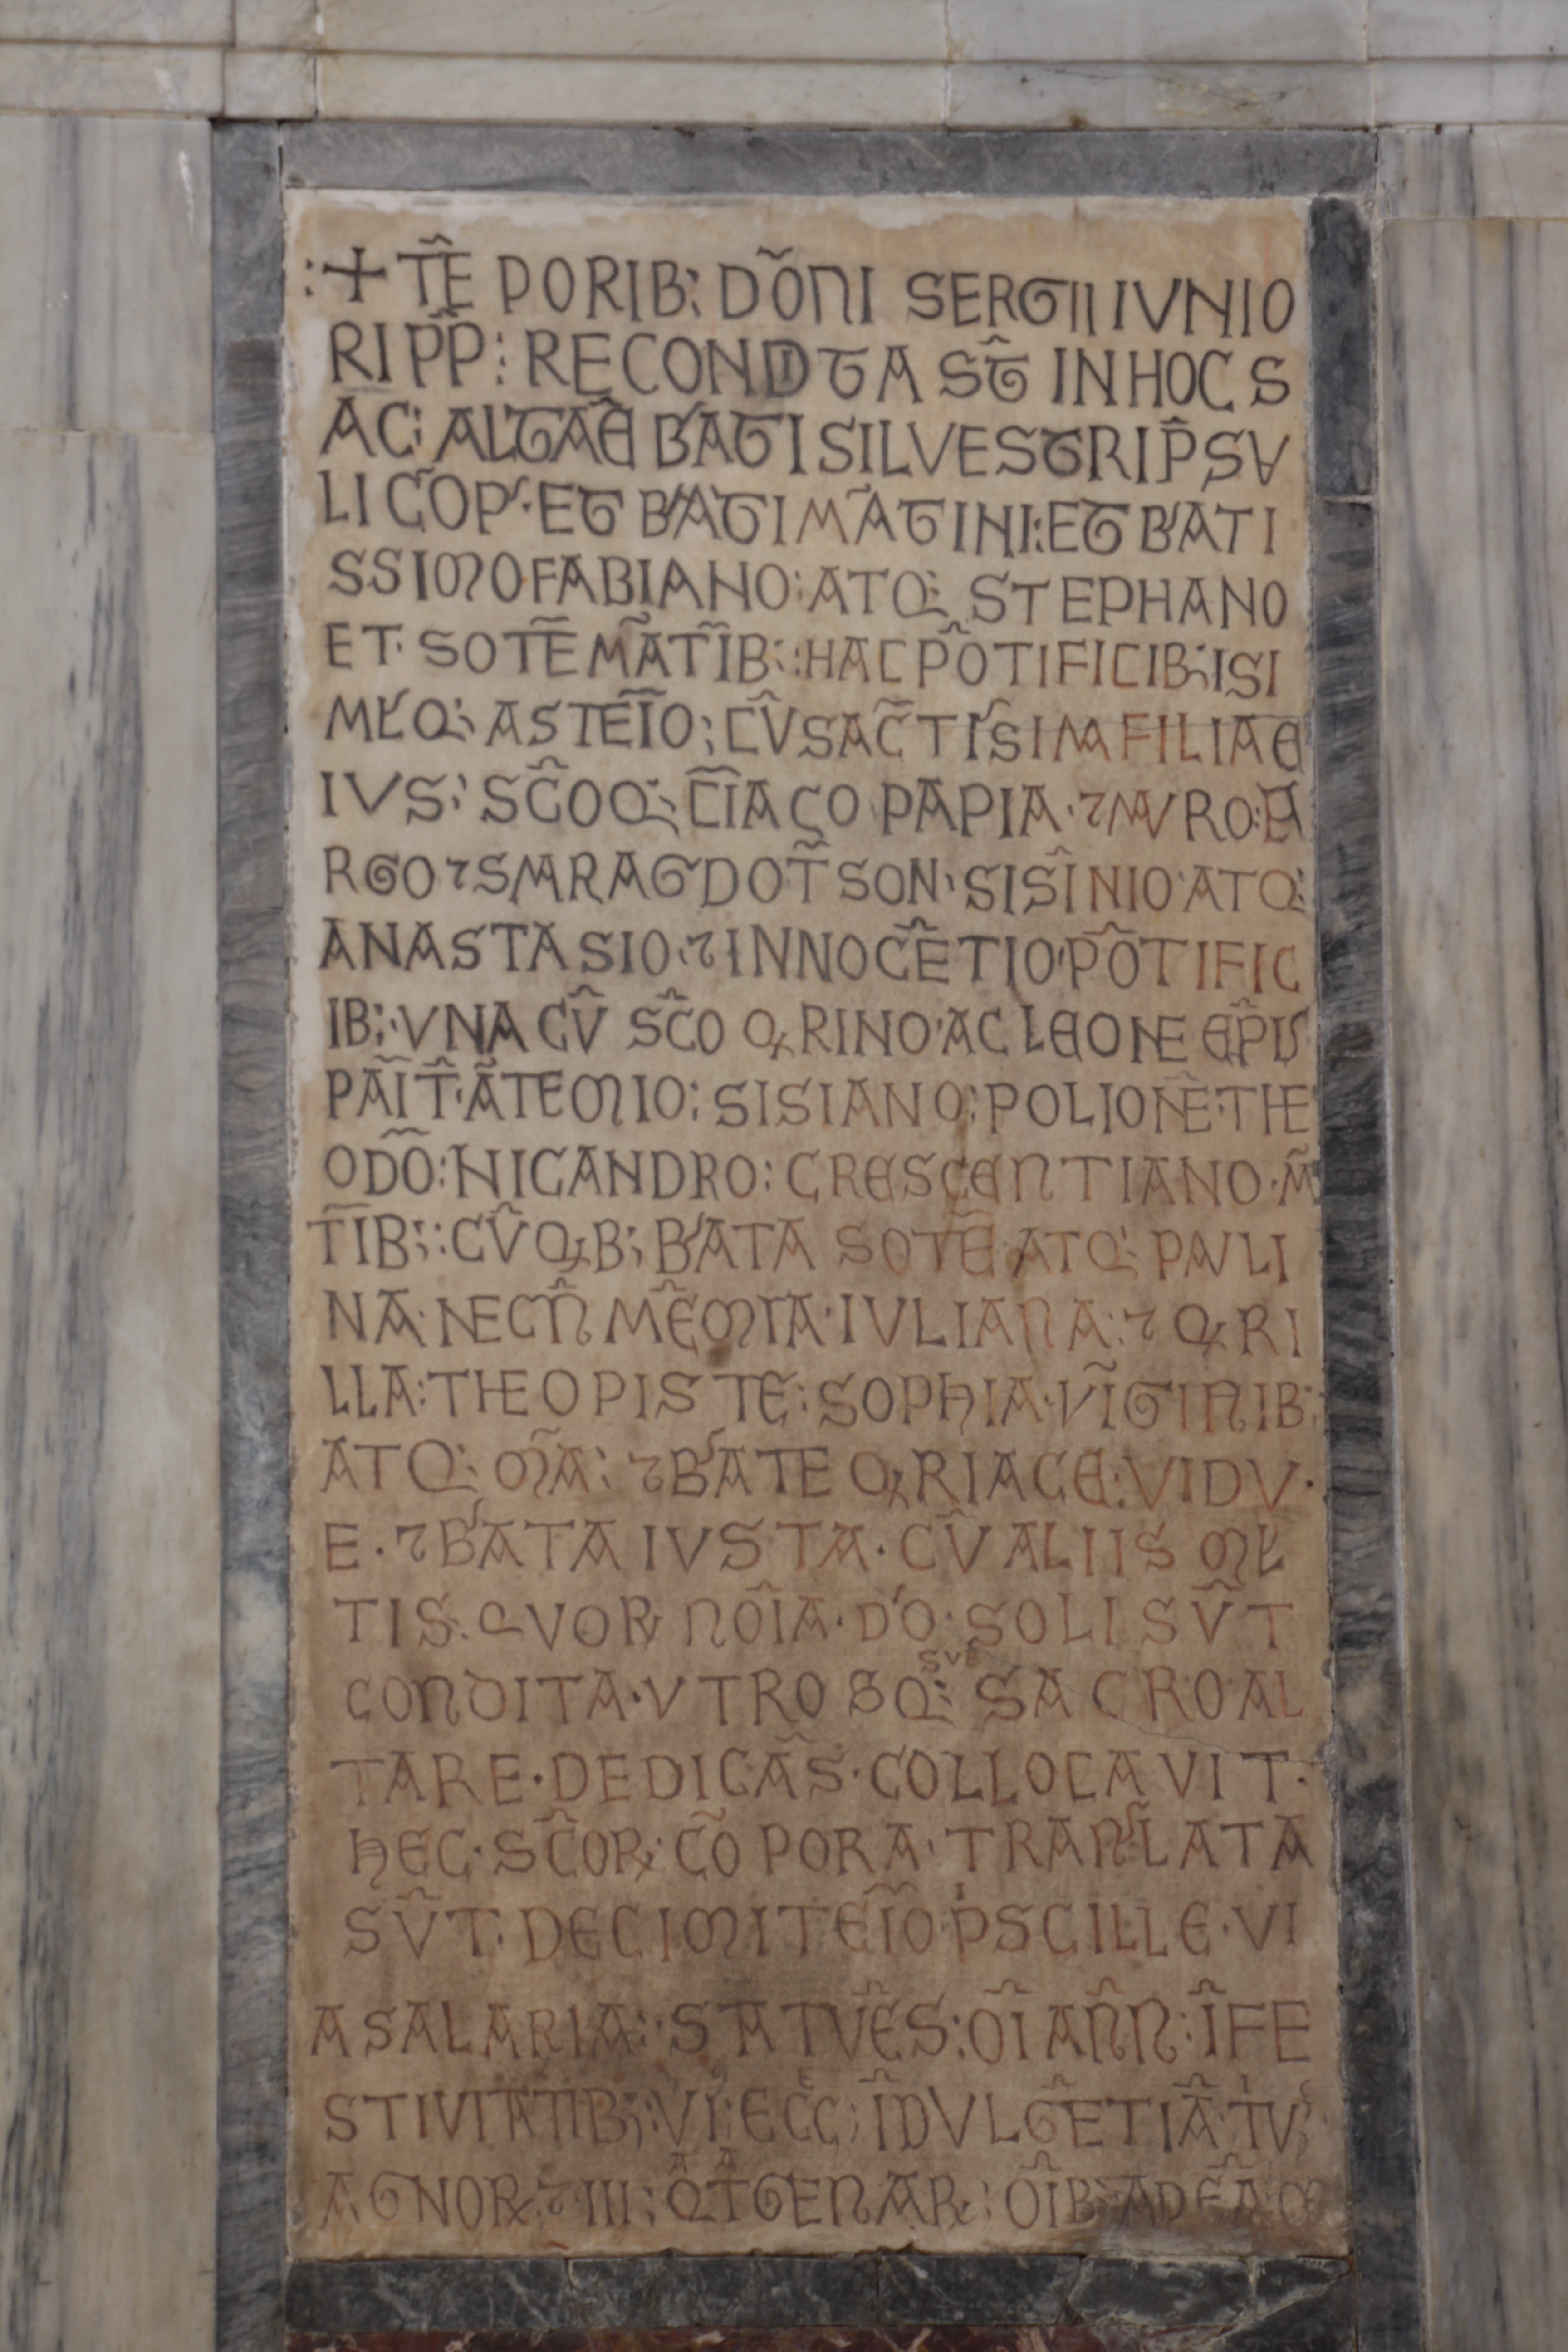 :+ TE͂ PORIB: DÕNI SERGII IVNIO
RI PP͂: RECONDITA ST͂ IN HOC S
AC: ALTAR͂E B'ATI SILVESTRI P͂SV
LI C͂OP'· ET B'ATI MÃTINI: ET B'ATI
SSIMO FABIANO: ATQ: STEPHANO
ET· SOTẼ MÃTĨB: :HAC PÕTIFICIB: ISI
MƚQ: ASTEI͂O: CV͂ SAC͂TIS͂IMA FILIA E
IVS: SC͂OQ: CI͂AÇO PAPIA· ⁊ MAVRO: LA
RGO ⁊ SMARAGDO T͂SON· SISĨNIO ATQ:
ANASTASIO· ⁊ INNOCẼTIO· PÕTIFIC
IB: ·VNA CV͂ SC͂O QRINO· AC LEONE EP͂IS
PAI͂T͂· ÃTEMIO: SISIANO: POLIONE· THE
ODÕ: NICANDRO: CRESCENTIANO· M͂
TI͂B: :CV͂ QB: B'ATA SOTẼ ATQ: PAVLI
NA· NEC N͂ MẼMIA· IVLIANA: ⁊ QRI
LLA: THEOPISTE: SOPHIA· VI͂GINIB:
ATQ: M͂A: ⁊ B'ATE QRIACE: VIDV·
E· ⁊ B'ATA IVSTA· CV͂ ALIIS Mƚ
TIS· QVOR NOI͂A· D'O· SOLI SV͂T
CONDITA· VTROSQ: SVB SACRO AL
TARE· DEDICÃS· COLLOCAVIT·
HEC· SC͂OR: CÕPORA· TRANSLATA
SV͂T· DECIMITEI͂O P'SCILLE· VI
A SALARIA: ·STATVẼS: OI͂ AN͂N: I͂ FE
STIVITATIB:
AGNOR